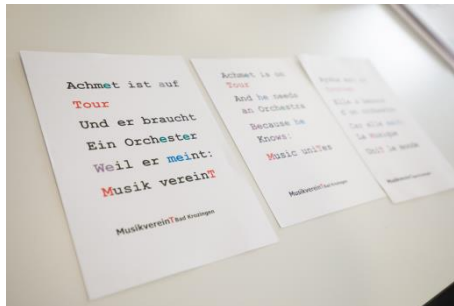 Achmet ist auf
Tour
Und er braucht
Ein Orchester
Weil er meint:
Musik vereinT
MusikvereinT Bad Krozingen
Achmet is on
Tour
And he needs
an Orchestra
Because he
Knows:
Music uniTes
MusikvereinT Bad Krozingen
Elle a besoin
La Musique